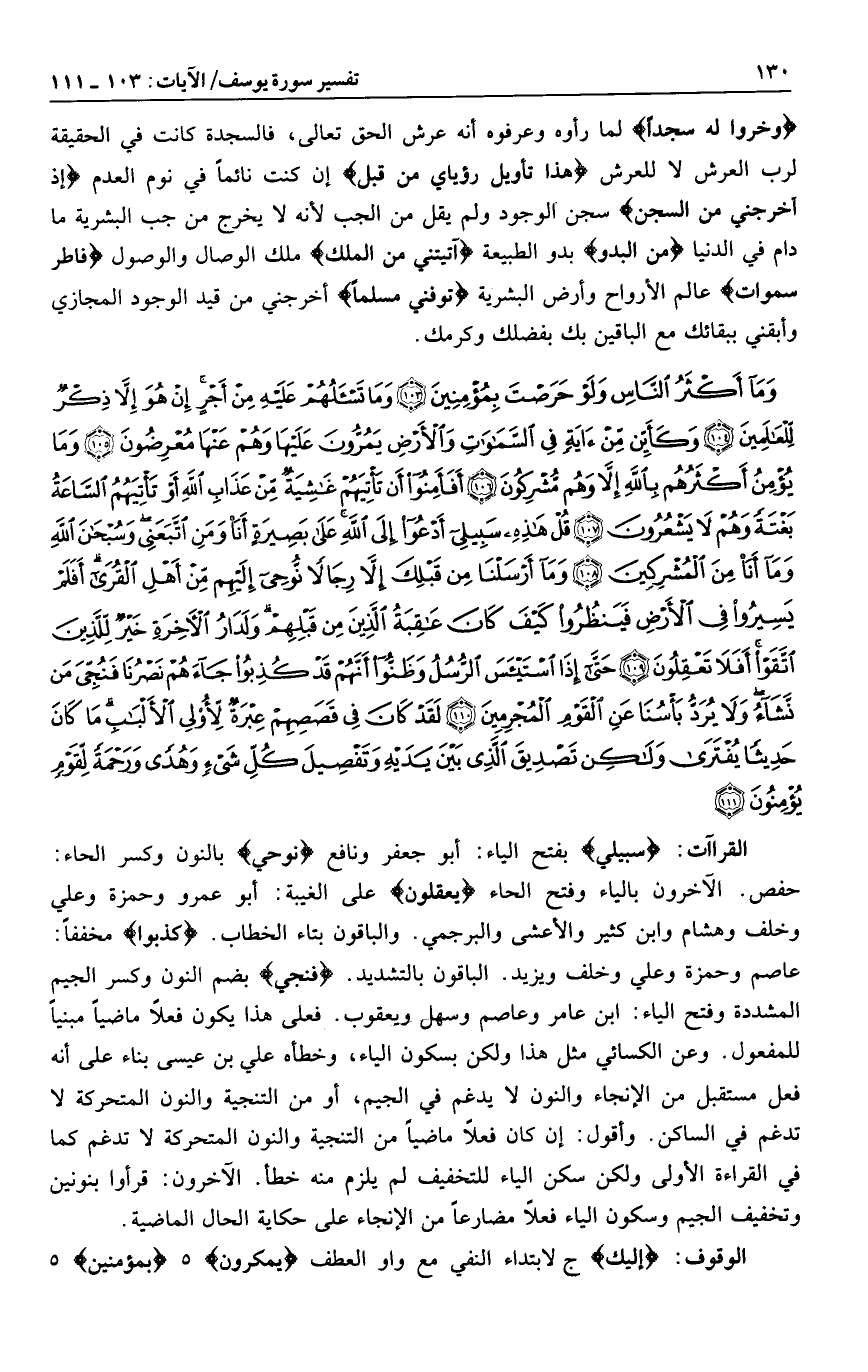 ١٣٠
تفسير سورة يوسف/ الآيات: ١٠٣ ـ ١١١
﴿وخروا له سجداً﴾ لما رأوه وعرفوه أنه عرش الحق تعالى، فالسجدة كانت في الحقيقة
لرب العرش لا للعرش ﴿هذا تأويل رؤياي من قبل﴾ إن كنت نائماً في نوم العدم ﴿إذ
أخرجني من السجن﴾ سجن الوجود ولم يقل من الجب لأنه لا يخرج من جب البشرية ما
دام في الدنيا ﴿من البدو﴾ بدو الطبيعة ﴿آتيتني من الملك﴾ ملك الوصال والوصول ﴿فاطر
سموات﴾ عالم الأرواح وأرض البشرية ﴿توفني مسلماً﴾ أخرجني من قيد الوجود المجازي
وأبقني ببقائك مع الباقين بك بفضلك وكرمك.
وَمَآ أَكْثَرُ ٱلنَّاسِ وَلَوْ حَرَصْتَ بِمُؤْمِنِينَ ١٠٣ وَمَا تَسْـَٔلُهُمْ عَلَيْهِ مِنْ أَجْرٍۚ إِنْ هُوَ إِلَّا ذِكْرٌ
لِّلْعَٰلَمِينَ ١٠٤ وَكَأَيِّن مِّنْ ءَايَةٍ فِى ٱلسَّمَٰوَٰتِ وَٱلْأَرْضِ يَمُرُّونَ عَلَيْهَا وَهُمْ عَنْهَا مُعْرِضُونَ ١٠٥ وَمَا
يُؤْمِنُ أَكْثَرُهُم بِٱللَّهِ إِلَّا وَهُم مُّشْرِكُونَ ١٠٦ أَفَأَمِنُوٓا۟ أَن تَأْتِيَهُمْ غَٰشِيَةٌ مِّنْ عَذَابِ ٱللَّهِ أَوْ تَأْتِيَهُمُ ٱلسَّاعَةُ
بَغْتَةً وَهُمْ لَا يَشْعُرُونَ ١٠٧ قُلْ هَٰذِهِۦ سَبِيلِىٓ أَدْعُوٓا۟ إِلَى ٱللَّهِۚ عَلَىٰ بَصِيرَةٍ أَنَا۠ وَمَنِ ٱتَّبَعَنِىۖ وَسُبْحَٰنَ ٱللَّهِ
وَمَآ أَنَا۠ مِنَ ٱلْمُشْرِكِينَ ١٠٨ وَمَآ أَرْسَلْنَا مِن قَبْلِكَ إِلَّا رِجَالًا نُّوحِىٓ إِلَيْهِم مِّنْ أَهْلِ ٱلْقُرَىٰٓۗ أَفَلَمْ
يَسِيرُوا۟ فِى ٱلْأَرْضِ فَيَنظُرُوا۟ كَيْفَ كَانَ عَٰقِبَةُ ٱلَّذِينَ مِن قَبْلِهِمْۗ وَلَدَارُ ٱلْءَاخِرَةِ خَيْرٌ لِّلَّذِينَ
ٱتَّقَوْا۟ۗ أَفَلَا تَعْقِلُونَ ١٠٩ حَتَّىٰٓ إِذَا ٱسْتَيْـَٔسَ ٱلرُّسُلُ وَظَنُّوٓا۟ أَنَّهُمْ قَدْ كُذِبُوا۟ جَآءَهُمْ نَصْرُنَا فَنُجِّىَ مَن
نَّشَآءُۖ وَلَا يُرَدُّ بَأْسُنَا عَنِ ٱلْقَوْمِ ٱلْمُجْرِمِينَ ١١٠ لَقَدْ كَانَ فِى قَصَصِهِمْ عِبْرَةٌ لِّأُو۟لِى ٱلْأَلْبَٰبِۗ مَا كَانَ
حَدِيثًا يُفْتَرَىٰ وَلَٰكِن تَصْدِيقَ ٱلَّذِى بَيْنَ يَدَيْهِ وَتَفْصِيلَ كُلِّ شَىْءٍ وَهُدًى وَرَحْمَةً لِّقَوْمٍ
يُؤْمِنُونَ ١١١
القراآت: ﴿سبيلي﴾ بفتح الياء: أبو جعفر ونافع ﴿نوحي﴾ بالنون وكسر الحاء:
حفص. الآخرون بالياء وفتح الحاء ﴿يعقلون﴾ على الغيبة: أبو عمرو وحمزة وعلي
وخلف وهشام وابن كثير والأعشى والبرجمي. والباقون بتاء الخطاب. ﴿كذبوا﴾ مخففاً:
عاصم وحمزة وعلي وخلف ويزيد. الباقون بالتشديد. ﴿فنجي﴾ بضم النون وكسر الجيم
المشددة وفتح الياء: ابن عامر وعاصم وسهل ويعقوب. فعلى هذا يكون فعلاً ماضياً مبنياً
للمفعول. وعن الكسائي مثل هذا ولكن بسكون الياء، وخطأه علي بن عيسى بناء على أنه
فعل مستقبل من الإنجاء والنون لا يدغم في الجيم، أو من التنجية والنون المتحركة لا
تدغم في الساكن. وأقول: إن كان فعلاً ماضياً من التنجية والنون المتحركة لا تدغم كما
في القراءة الأولى ولكن سكن الياء للتخفيف لم يلزم منه خطأ. الآخرون: قرأوا بنونين
وتخفيف الجيم وسكون الياء فعلاً مضارعاً من الإنجاء على حكاية الحال الماضية.
الوقوف: ﴿إليك﴾ ج لابتداء النفي مع واو العطف ﴿يمكرون﴾ ٥ ﴿بمؤمنين﴾ ٥